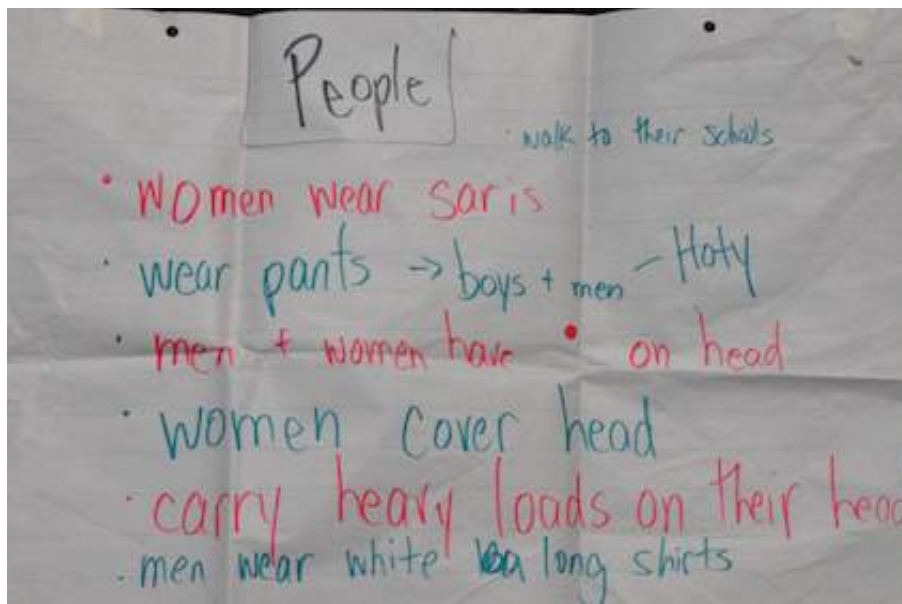 People
· walk to their schools
· Women wear saris
· wear pants → boys + men – Hoty
· men + women have • on head
· women cover head
· carry heavy loads on their head
· men wear white long shirts